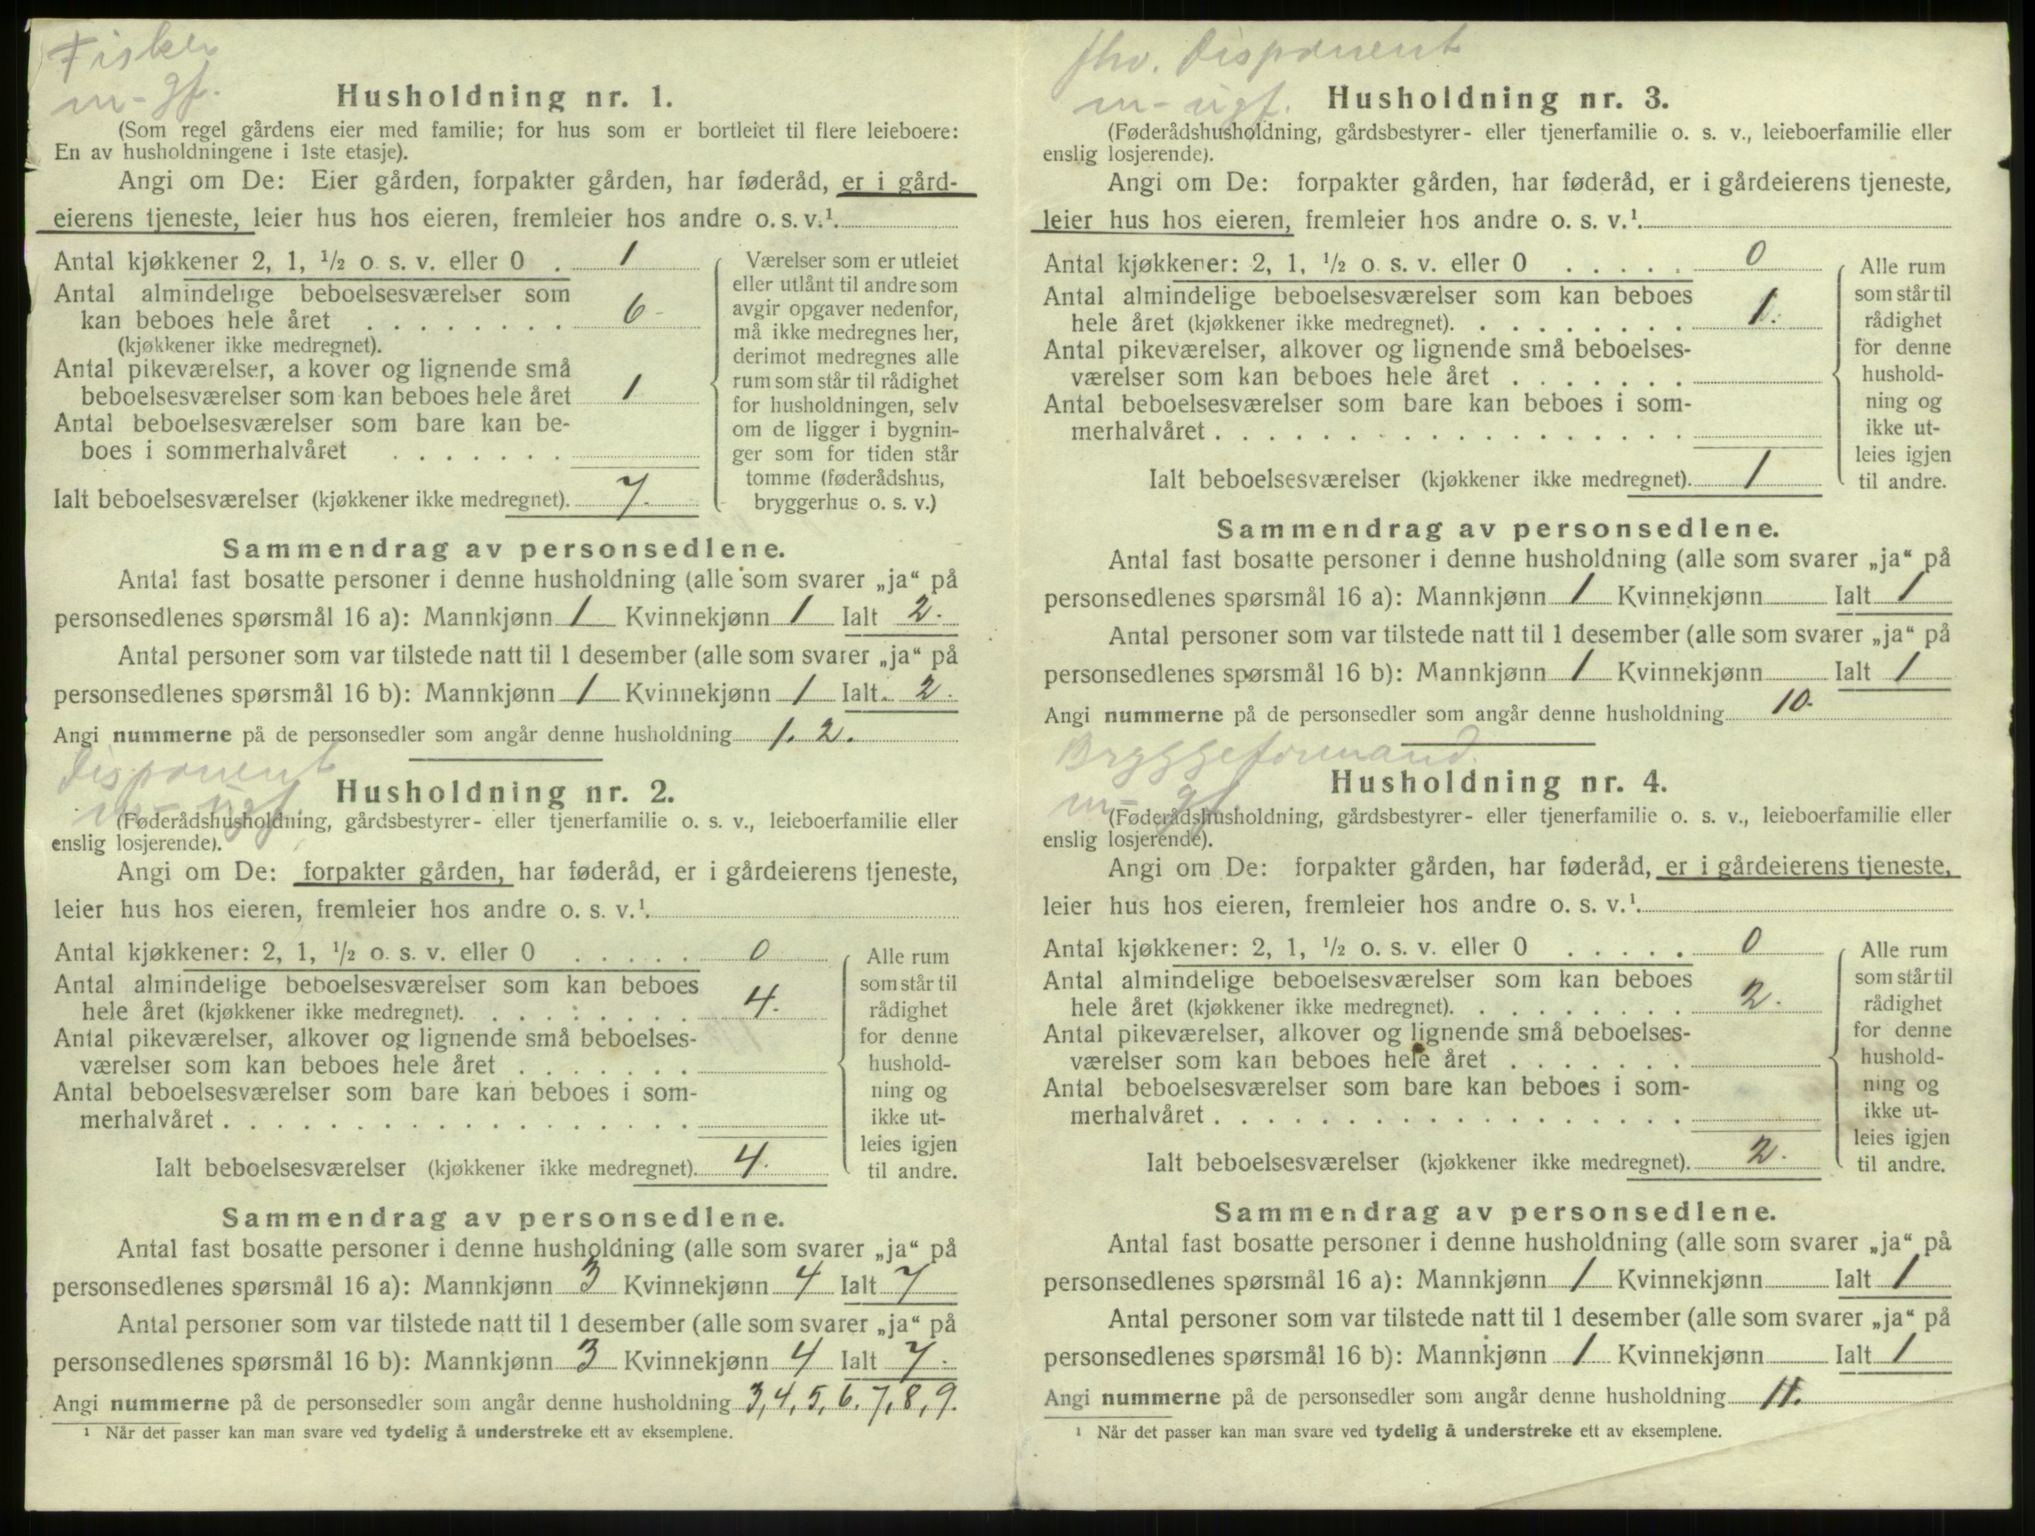 Fisker
m-gf.
Husholdning nr. 1.
(Som regel gårdens eier med familie; for hus som er bortleiet til flere leieboere:
En av husholdningene i 1ste etasje).
Angi om De: Eier gården, forpakter gården, har føderåd, er i gård-
eierens tjeneste, leier hus hos eieren, fremleier hos andre o. s. v.¹.
Antal kjøkkener 2, 1, ½ o s. v. eller 0 . 1
Antal almindelige beboelsesværelser som
kan beboes hele året . . . . . . . . 6
(kjøkkener ikke medregnet).
Antal pikeværelser, a kover og lignende små
beboelsesværelser som kan beboes hele året 1
Antal beboelsesværelser som bare kan be-
boes i sommerhalvåret . . . . . . .
Ialt beboelsesværelser (kjøkkener ikke medregnet). 7.
Værelser som er utleiet
eller utlånt til andre som
avgir opgaver nedenfor,
må ikke medregnes her,
derimot medregnes alle
rum som står til rådighet
for husholdningen, selv
om de ligger i bygnin-
ger som for tiden står
tomme (føderådshus,
bryggerhus o. s. v.)
Sammendrag av personsedlene.
Antal fast bosatte personer i denne husholdning (alle som svarer „ja“ på
personsedlenes spørsmål 16 a): Mannkjønn 1 Kvinnekjønn 1 Ialt 2.
Antal personer som var tilstede natt til 1 desember (alle som svarer „ja“ på
personsedlenes spørsmål 16 b): Mannkjønn 1 Kvinnekjønn 1 Ialt. 2.
Angi nummerne på de personsedler som angår denne husholdning 1. 2.
Disponent
m-ugf.
Husholdning nr. 2.
(Føderådshusholdning, gårdsbestyrer- eller tjenerfamilie o. s. v., leieboerfamilie eller
enslig losjerende).
Angi om De: forpakter gården, har føderåd, er i gårdeierens tjeneste,
leier hus hos eieren, fremleier hos andre o. s. v.¹.
Antal kjøkkener: 2, 1, ½ o. s. v. eller 0 . . . . . 0
Antal almindelige beboelsesværelser som kan beboes
hele året (kjøkkener ikke medregnet). . . . . . . . . 4.
Antal pikeværelser, alkover og lignende små beboelses-
værelser som kan beboes hele året . . . . . . .
Antal beboelsesværelser som bare kan beboes i som-
merhalvåret . . . . . . . . . . . . . . . . . .
Ialt beboelsesværelser (kjøkkener ikke medregnet). 4.
Alle rum
som står til
rådighet
for denne
hushold-
ning og
ikke ut-
leies igjen
til andre.
Sammendrag av personsedlene.
Antal fast bosatte personer i denne husholdning (alle som svarer „ja“ på
personsedlenes spørsmål 16 a): Mannkjønn 3 Kvinnekjønn 4 Ialt 7
Antal personer som var tilstede natt til 1 desember (alle som svarer „ja“ på
personsedlenes spørsmål 16 b): Mannkjønn 3 Kvinnekjønn 4 Ialt 7.
Angi nummerne på de personsedler som angår denne husholdning 3, 4, 5, 6, 7, 8, 9.
¹ Når det passer kan man svare ved tydelig å understreke ett av eksemplene.
fhv. Disponent
m-ugf.
Husholdning nr. 3.
(Føderådshusholdning, gårdsbestyrer- eller tjenerfamilie o. s. v., leieboerfamilie eller
enslig losjerende).
Angi om De: forpakter gården, har føderåd, er i gårdeierens tjeneste,
leier hus hos eieren, fremleier hos andre o. s. v.¹.
Antal kjøkkener: 2, 1, ½ o. s. v. eller 0 . . . . . 0
Antal almindelige beboelsesværelser som kan beboes
hele året (kjøkkener ikke medregnet). . . . . . . . . 1.
Antal pikeværelser, alkover og lignende små beboelses-
værelser som kan beboes hele året . . . . . . .
Antal beboelsesværelser som bare kan beboes i som-
merhalvåret . . . . . . . . . . . . . . . . . .
Ialt beboelsesværelser (kjøkkener ikke medregnet). 1
Alle rum
som står til
rådighet
for denne
hushold-
ning og
ikke ut-
leies igjen
til andre.
Sammendrag av personsedlene.
Antal fast bosatte personer i denne husholdning (alle som svarer „ja“ på
personsedlenes spørsmål 16 a): Mannkjønn 1 Kvinnekjønn Ialt 1
Antal personer som var tilstede natt til 1 desember (alle som svarer „ja“ på
personsedlenes spørsmål 16 b): Mannkjønn 1 Kvinnekjønn Ialt 1
Angi nummerne på de personsedler som angår denne husholdning 10.
Bryggeformand.
m-gf
Husholdning nr. 4.
(Føderådshusholdning, gårdsbestyrer- eller tjenerfamilie o. s. v., leieboerfamilie eller
enslig losjerende).
Angi om De: forpakter gården, har føderåd, er i gårdeierens tjeneste,
leier hus hos eieren, fremleier hos andre o. s. v.¹.
Antal kjøkkener: 2, 1, ½ o. s. v. eller 0 . . . . . 0
Antal almindelige beboelsesværelser som kan beboes
hele året (kjøkkener ikke medregnet). . . . . . . . . 2.
Antal pikeværelser, alkover og lignende små beboelses-
værelser som kan beboes hele året . . . . . . .
Antal beboelsesværelser som bare kan beboes i som-
merhalvåret . . . . . . . . . . . . . . . . . .
Ialt beboelsesværelser (kjøkkener ikke medregnet). 2.
Alle rum
som står til
rådighet
for denne
hushold-
ning og
ikke ut-
leies igjen
til andre.
Sammendrag av personsedlene.
Antal fast bosatte personer i denne husholdning (alle som svarer „ja“ på
personsedlenes spørsmål 16 a): Mannkjønn 1 Kvinnekjønn Ialt 1
Antal personer som var tilstede natt til 1 desember (alle som svarer „ja“ på
personsedlenes spørsmål 16 b): Mannkjønn 1 Kvinnekjønn Ialt 1
Angi nummerne på de personsedler som angår denne husholdning 11.
¹ Når det passer kan man svare ved tydelig å understreke ett av eksemplene.